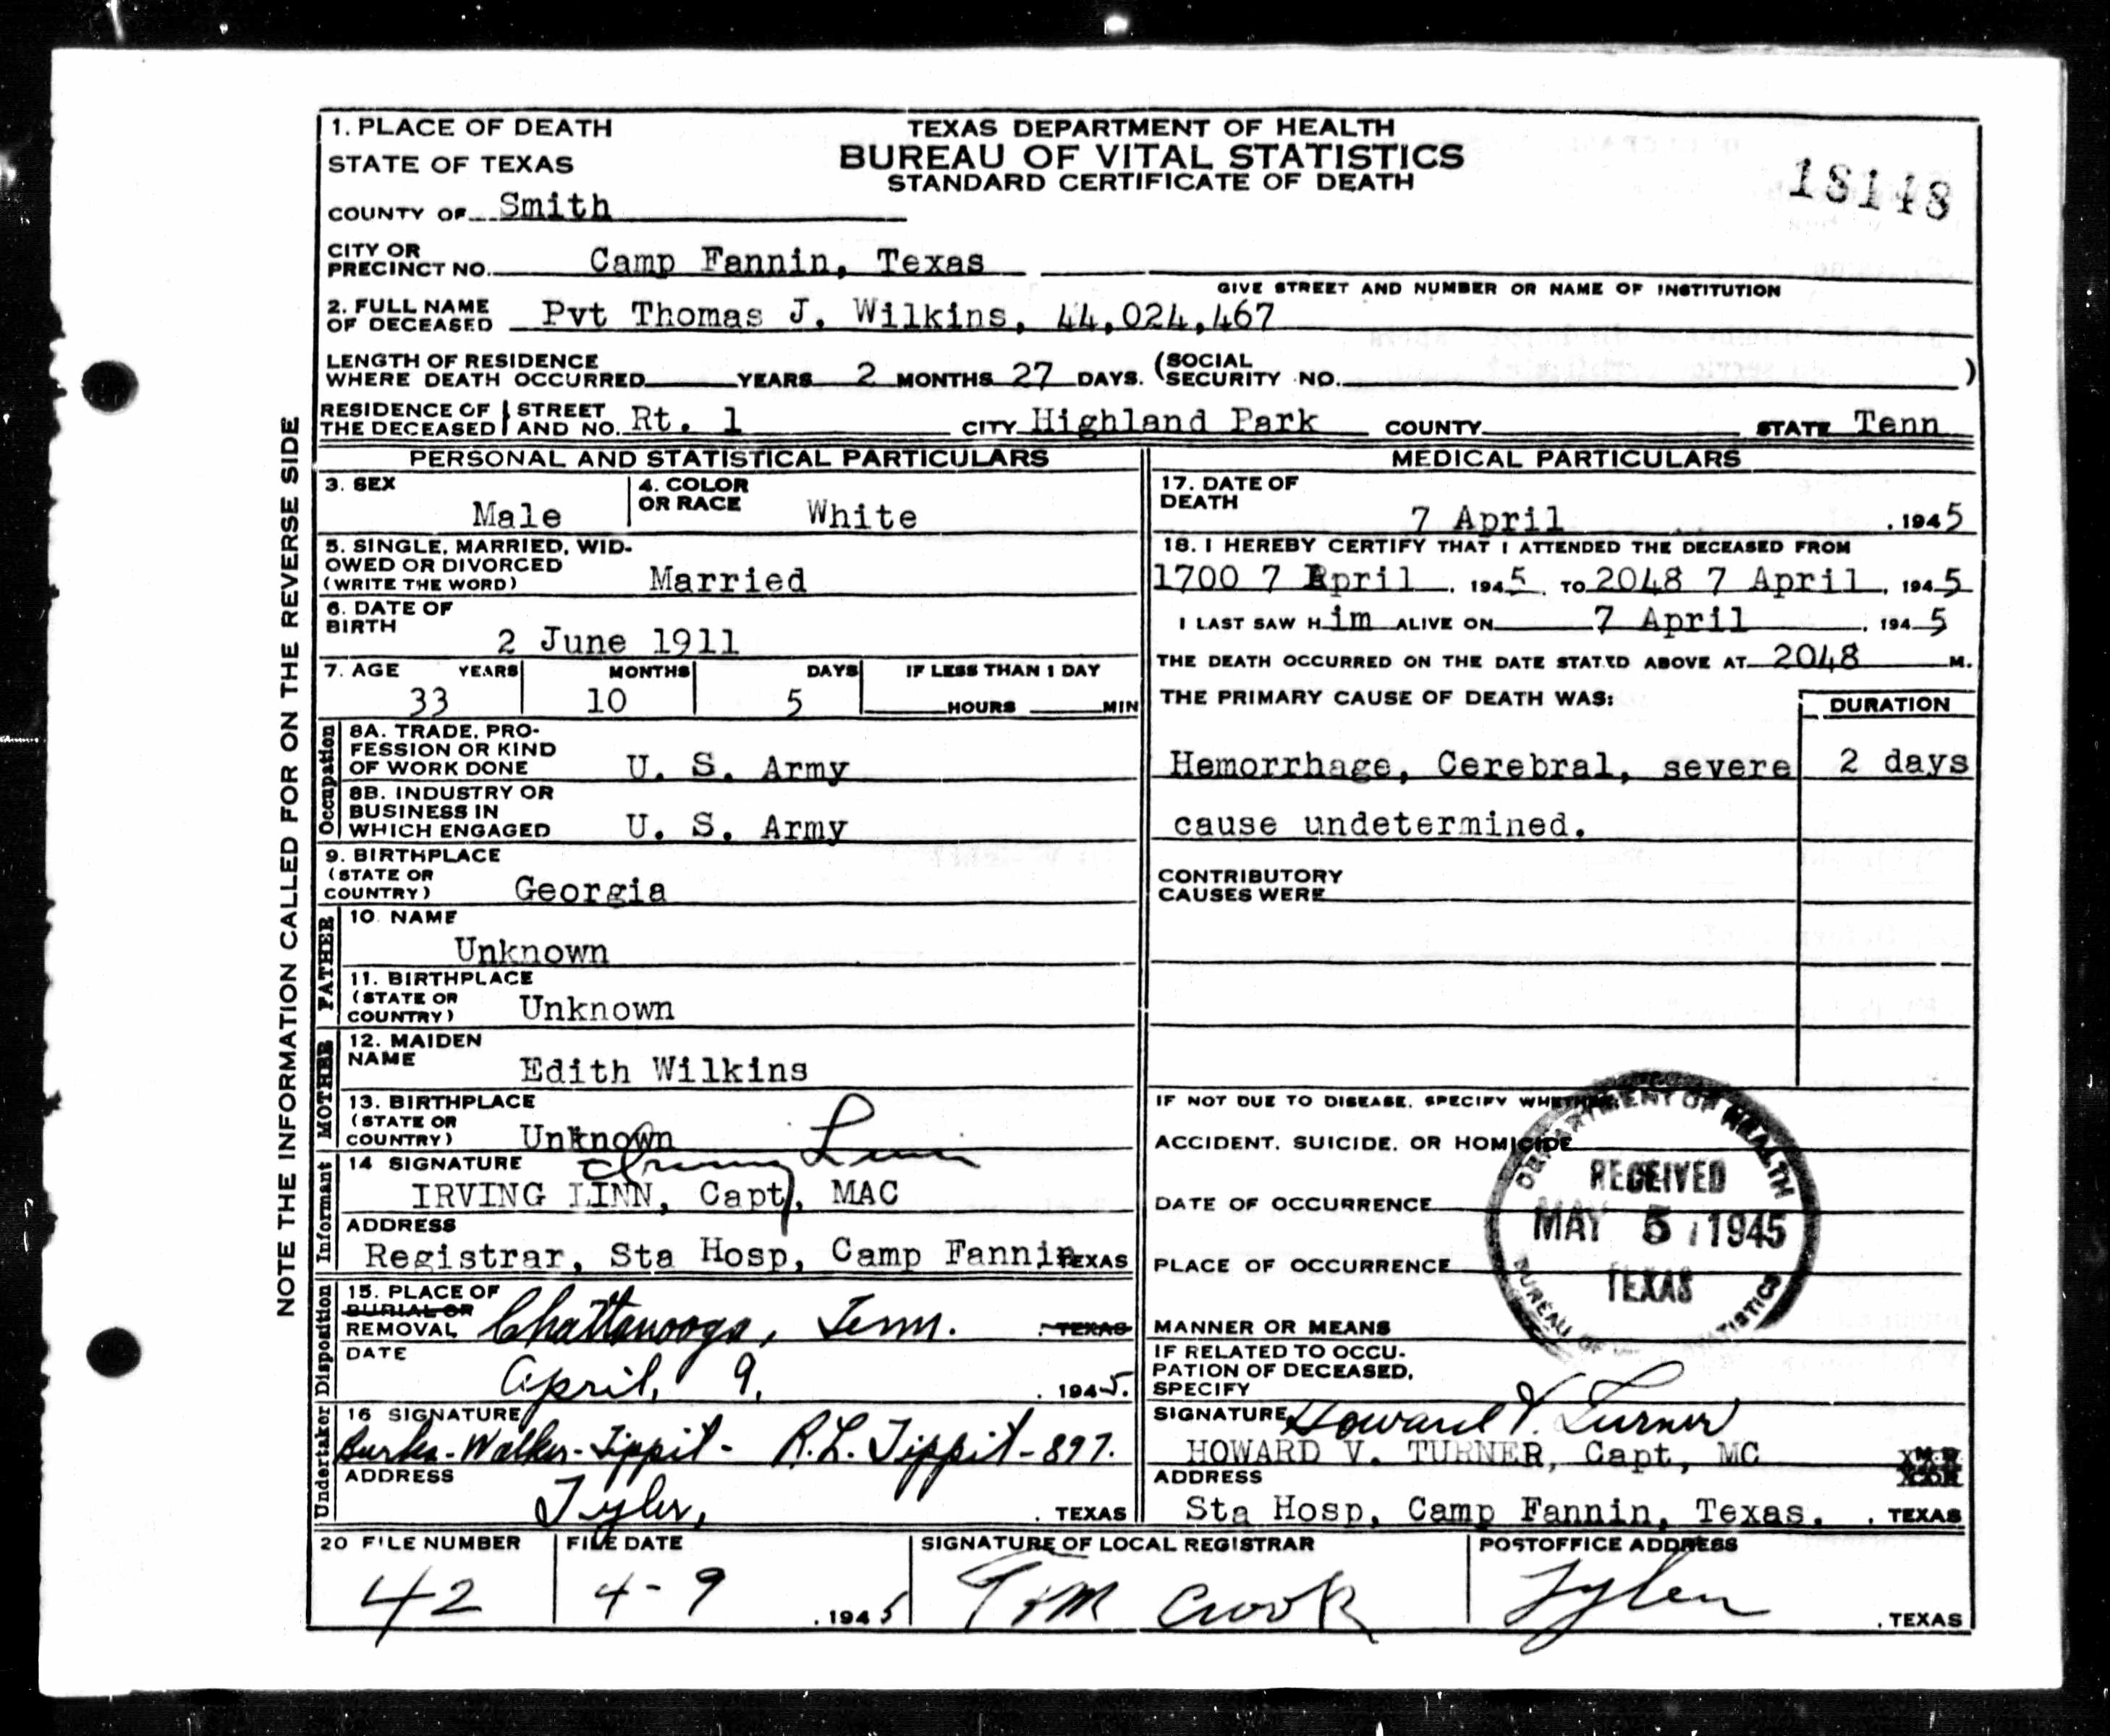 1. PLACE OF DEATH
STATE OF TEXAS
COUNTY OF Smith
TEXAS DEPARTMENT OF HEALTH
BUREAU OF VITAL STATISTICS
STANDARD CERTIFICATE OF DEATH
18148
CITY OR
PRECINCT NO. Camp Fannin, Texas
GIVE STREET AND NUMBER OR NAME OF INSTITUTION
2. FULL NAME
OF DECEASED Pvt Thomas J. Wilkins, 44,024,467
LENGTH OF RESIDENCE
WHERE DEATH OCCURRED YEARS 2 MONTHS 27 DAYS. (SOCIAL
SECURITY NO. )
RESIDENCE OF THE DECEASED STREET AND NO. Rt. 1 CITY Highland Park COUNTY STATE Tenn
NOTE THE INFORMATION CALLED FOR ON THE REVERSE SIDE
PERSONAL AND STATISTICAL PARTICULARS
3. SEX Male
4. COLOR
OR RACE White
5. SINGLE, MARRIED, WID-
OWED OR DIVORCED
(WRITE THE WORD) Married
6. DATE OF
BIRTH 2 June 1911
7. AGE YEARS MONTHS DAYS IF LESS THAN 1 DAY
33 10 5 HOURS MIN
Occupation
8A. TRADE, PRO-
FESSION OR KIND
OF WORK DONE U. S. Army
8B. INDUSTRY OR
BUSINESS IN
WHICH ENGAGED U. S. Army
9. BIRTHPLACE
(STATE OR
COUNTRY) Georgia
FATHER
10. NAME
Unknown
11. BIRTHPLACE
(STATE OR
COUNTRY) Unknown
MOTHER
12. MAIDEN
NAME Edith Wilkins
13. BIRTHPLACE
(STATE OR
COUNTRY) Unknown
Informant
14 SIGNATURE Irving Linn
IRVING LINN, Capt, MAC
ADDRESS
Registrar, Sta Hosp, Camp Fannin TEXAS
Disposition
15. PLACE OF
BURIAL OR
REMOVAL Chattanooga, Tenn. , TEXAS
DATE
April, 9, , 1945.
Undertaker
16 SIGNATURE
Burks-Walker-Tippit- R.L. Tippit-897.
ADDRESS
Tyler, , TEXAS
MEDICAL PARTICULARS
17. DATE OF
DEATH 7 April , 1945
18. I HEREBY CERTIFY THAT I ATTENDED THE DECEASED FROM
1700 7 April , 1945, TO 2048 7 April , 1945
I LAST SAW Him ALIVE ON 7 April , 1945
THE DEATH OCCURRED ON THE DATE STATED ABOVE AT 2048 M.
THE PRIMARY CAUSE OF DEATH WAS: DURATION
Hemorrhage, Cerebral, severe 2 days
cause undetermined.
CONTRIBUTORY
CAUSES WERE
IF NOT DUE TO DISEASE, SPECIFY WHETHER
ACCIDENT, SUICIDE, OR HOMICIDE
DATE OF OCCURRENCE
PLACE OF OCCURRENCE
MANNER OR MEANS
IF RELATED TO OCCU-
PATION OF DECEASED,
SPECIFY
DEPARTMENT OF HEALTH
RECEIVED
MAY 5 1945
TEXAS
BUREAU OF STATISTICS
SIGNATURE Howard V. Turner
HOWARD V. TURNER, Capt, MC
ADDRESS
Sta Hosp, Camp Fannin, Texas. , TEXAS
20 FILE NUMBER
42
FILE DATE
4-9 , 1945
SIGNATURE OF LOCAL REGISTRAR
Crook
POSTOFFICE ADDRESS
Tyler , TEXAS